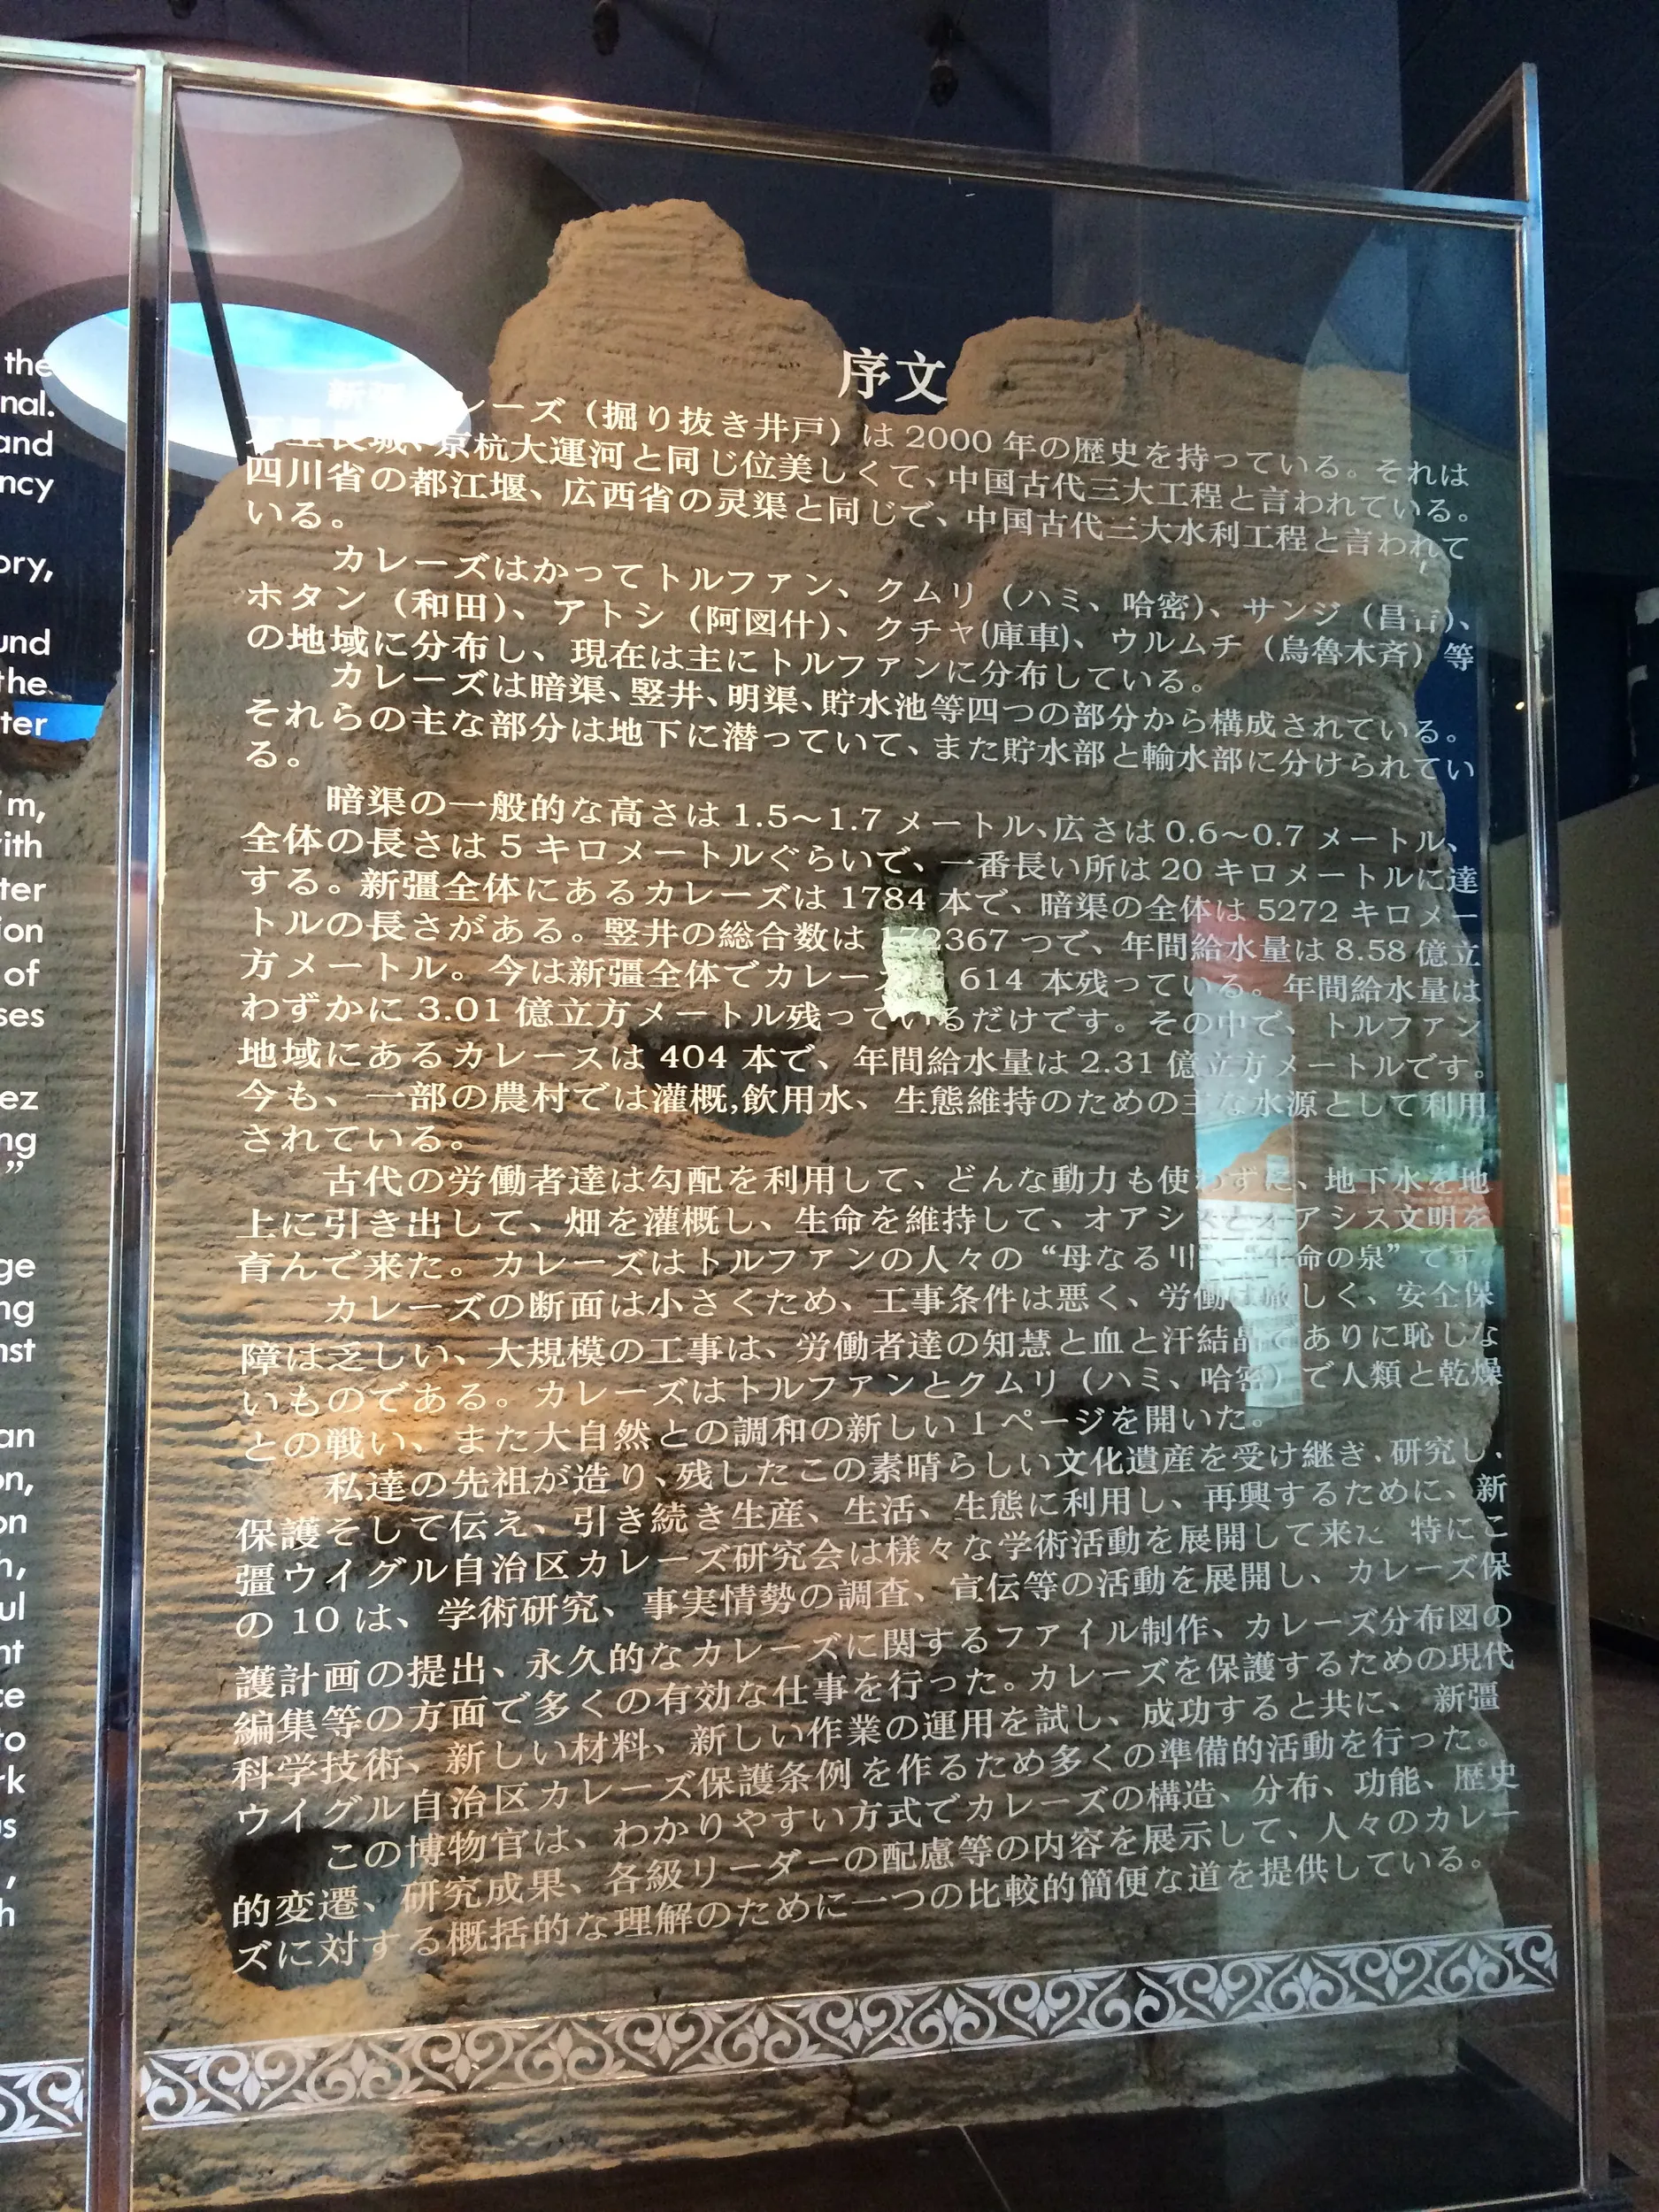 the
nal.
and
ncy
ory,
und
the
ter
m,
ith
ter
ion
of
ses
ez
ng
”
ge
ng
nst
an
on,
on
h,
ul
nt
ce
to
rk
us
,
h
序文
新疆カレーズ（掘り抜き井戸）は 2000 年の歴史を持っている。それは
万里長城、京杭大運河と同じ位美しくて、中国古代三大工程と言われている。
四川省の都江堰、広西省の灵渠と同じで、中国古代三大水利工程と言われて
いる。
カレーズはかってトルファン、クムリ（ハミ、哈密）、サンジ（昌吉）、
ホタン（和田）、アトシ（阿図什）、クチャ(庫車)、ウルムチ（烏魯木斉）等
の地域に分布し、現在は主にトルファンに分布している。
カレーズは暗渠、竪井、明渠、貯水池等四つの部分から構成されている。
それらの主な部分は地下に潜っていて、また貯水部と輸水部に分けられてい
る。
暗渠の一般的な高さは 1.5～1.7 メートル、広さは 0.6～0.7 メートル、
全体の長さは 5 キロメートルぐらいで、一番長い所は 20 キロメートルに達
する。新疆全体にあるカレーズは 1784 本で、暗渠の全体は 5272 キロメー
トルの長さがある。竪井の総合数は 172367 つで、年間給水量は 8.58 億立
方メートル。今は新疆全体でカレーズは 614 本残っている。年間給水量は
わずかに 3.01 億立方メートル残っているだけです。その中で、トルファン
地域にあるカレースは 404 本で、年間給水量は 2.31 億立方メートルです。
今も、一部の農村では灌概,飲用水、生態維持のための主な水源として利用
されている。
古代の労働者達は勾配を利用して、どんな動力も使わずに、地下水を地
上に引き出して、畑を灌概し、生命を維持して、オアシスとオアシス文明を
育んで来た。カレーズはトルファンの人々の “母なる川” “生命の泉” です
カレーズの断面は小さくため、工事条件は悪く、労働は厳しく、安全保
障は乏しい、大規模の工事は、労働者達の知慧と血と汗結晶でありに恥じな
いものである。カレーズはトルファンとクムリ（ハミ、哈密）で人類と乾燥
との戦い、また大自然との調和の新しい 1 ページを開いた。
私達の先祖が造り、残したこの素晴らしい文化遺産を受け継ぎ、研究し、
保護そして伝え、引き続き生産、生活、生態に利用し、再興するために、新
疆ウイグル自治区カレーズ研究会は様々な学術活動を展開して来た 特にこ
の 10 は、学術研究、事実情勢の調査、宣伝等の活動を展開し、カレーズ保
護計画の提出、永久的なカレーズに関するファイル制作、カレーズ分布図の
編集等の方面で多くの有効な仕事を行った。カレーズを保護するための現代
科学技術、新しい材料、新しい作業の運用を試し、成功すると共に、 新疆
ウイグル自治区カレーズ保護条例を作るため多くの準備的活動を行った。
この博物官は、わかりやすい方式でカレーズの構造、分布、功能、歴史
的変遷、研究成果、各級リーダーの配慮等の内容を展示して、人々のカレー
ズに対する概括的な理解のために一つの比較的簡便な道を提供している。